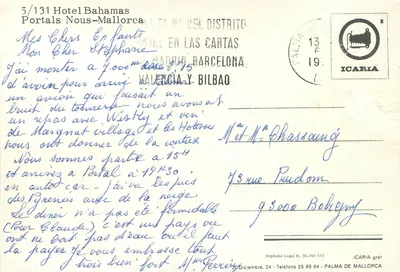 5/131 Hotel Bahamas
Portals Nous-Mallorca
EL Nº DEL DISTRITO
POSTAL EN LAS CARTAS
MADRID, BARCELONA,
VALENCIA Y BILBAO
PALMA
13
19
ICARIA
Mes Chers Enfants
Mon Cher Stéphane
J'ai monter a 7.000
d'avoir pour arrivé
un avion qui faisait un
bruit du tonnerre nous avons eu
un repas avec Wisky et vin
de Margnat village et les Hotesses
nous ont donner de la
Nous sommes partis a 15H
et arrivés a Portal a 17H30
en autocar - j'ai vu les pics
des Pyrénées avec de la neige
Le diner n'a pas été formidable
(Pour Claude) c'est un pays ou
ont ne boit pas d'eau ou il faut
la payer je vous embrasse tous
trois bien fort Mme Perrin
Mr et Mme Chassaing
73 rue Prudom
93000 Bobigny
ICARIA graf
Diciembre, 24 - Teléfono 25 63 64 - PALMA DE MALLORCA